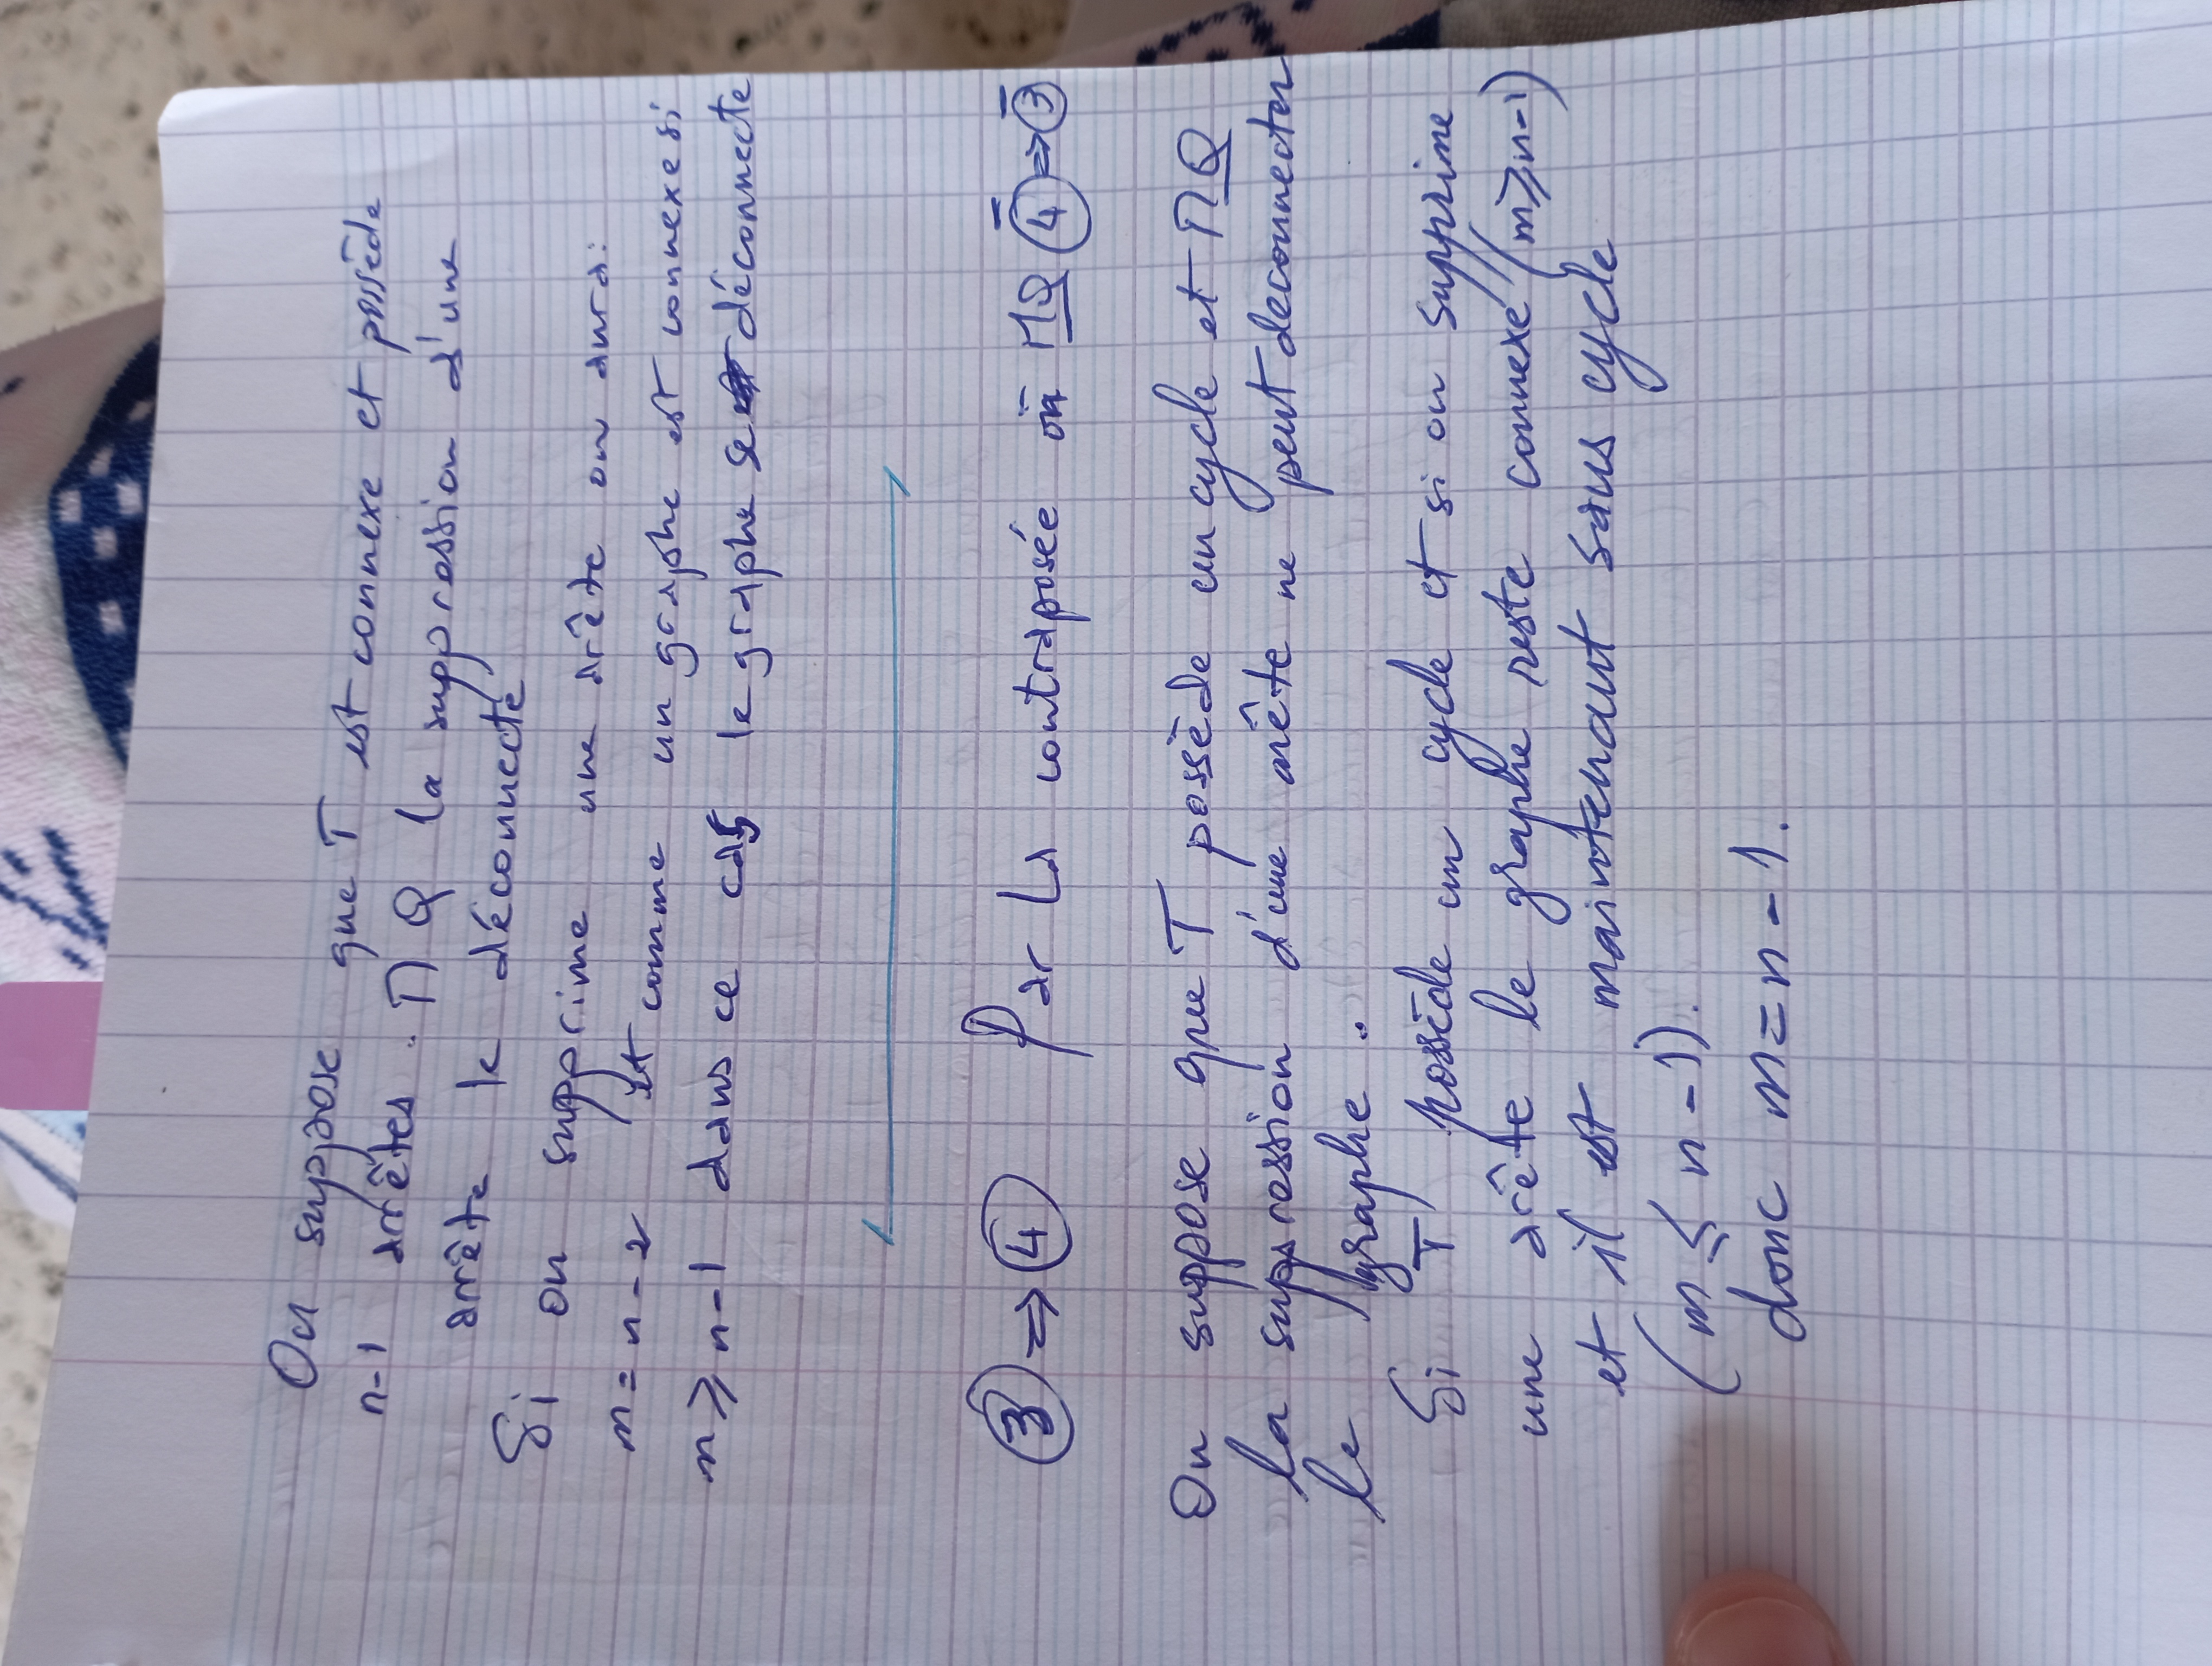 On suppose que T est connexe et possède
n-1 arrêtes. MQ la suppression d'une
arrête le déconnecte
Si on supprime une arête on aura:
m = n - 2 et comme un graphe est connexe si
m ⩾ n-1 dans ce cas le graphe se déconnecte
③ ⇒ ④ Par la contraposée on MQ ④̄ ⇒ ③̄
On suppose que T possède un cycle et MQ
la suppression d'une arête ne peut deconnecter
le graphe.
Si T possède un cycle et si on supprime
une arête le graphe reste connexe (m ⩾ n-1)
et il est maintenant sans cycle
(m ⩽ n - 1).
donc m = n - 1.